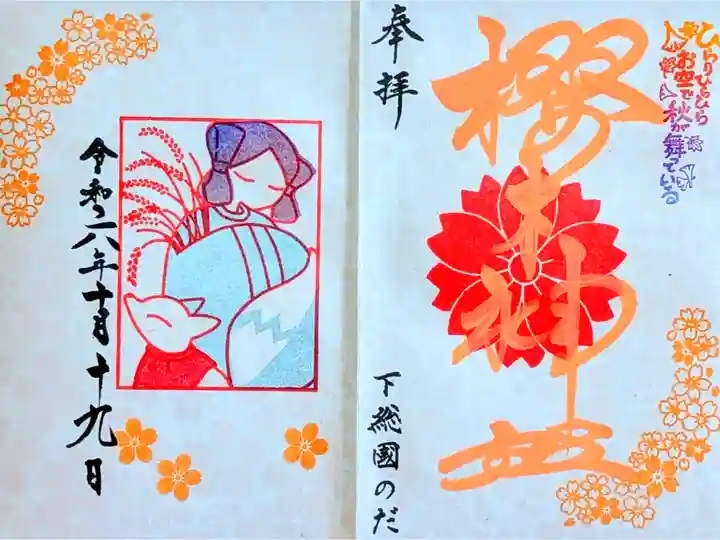 ひらりひらひら
お空で
秋が
舞っている
櫻木神社
奉拝
下総國のだ
令和六年十月十九日